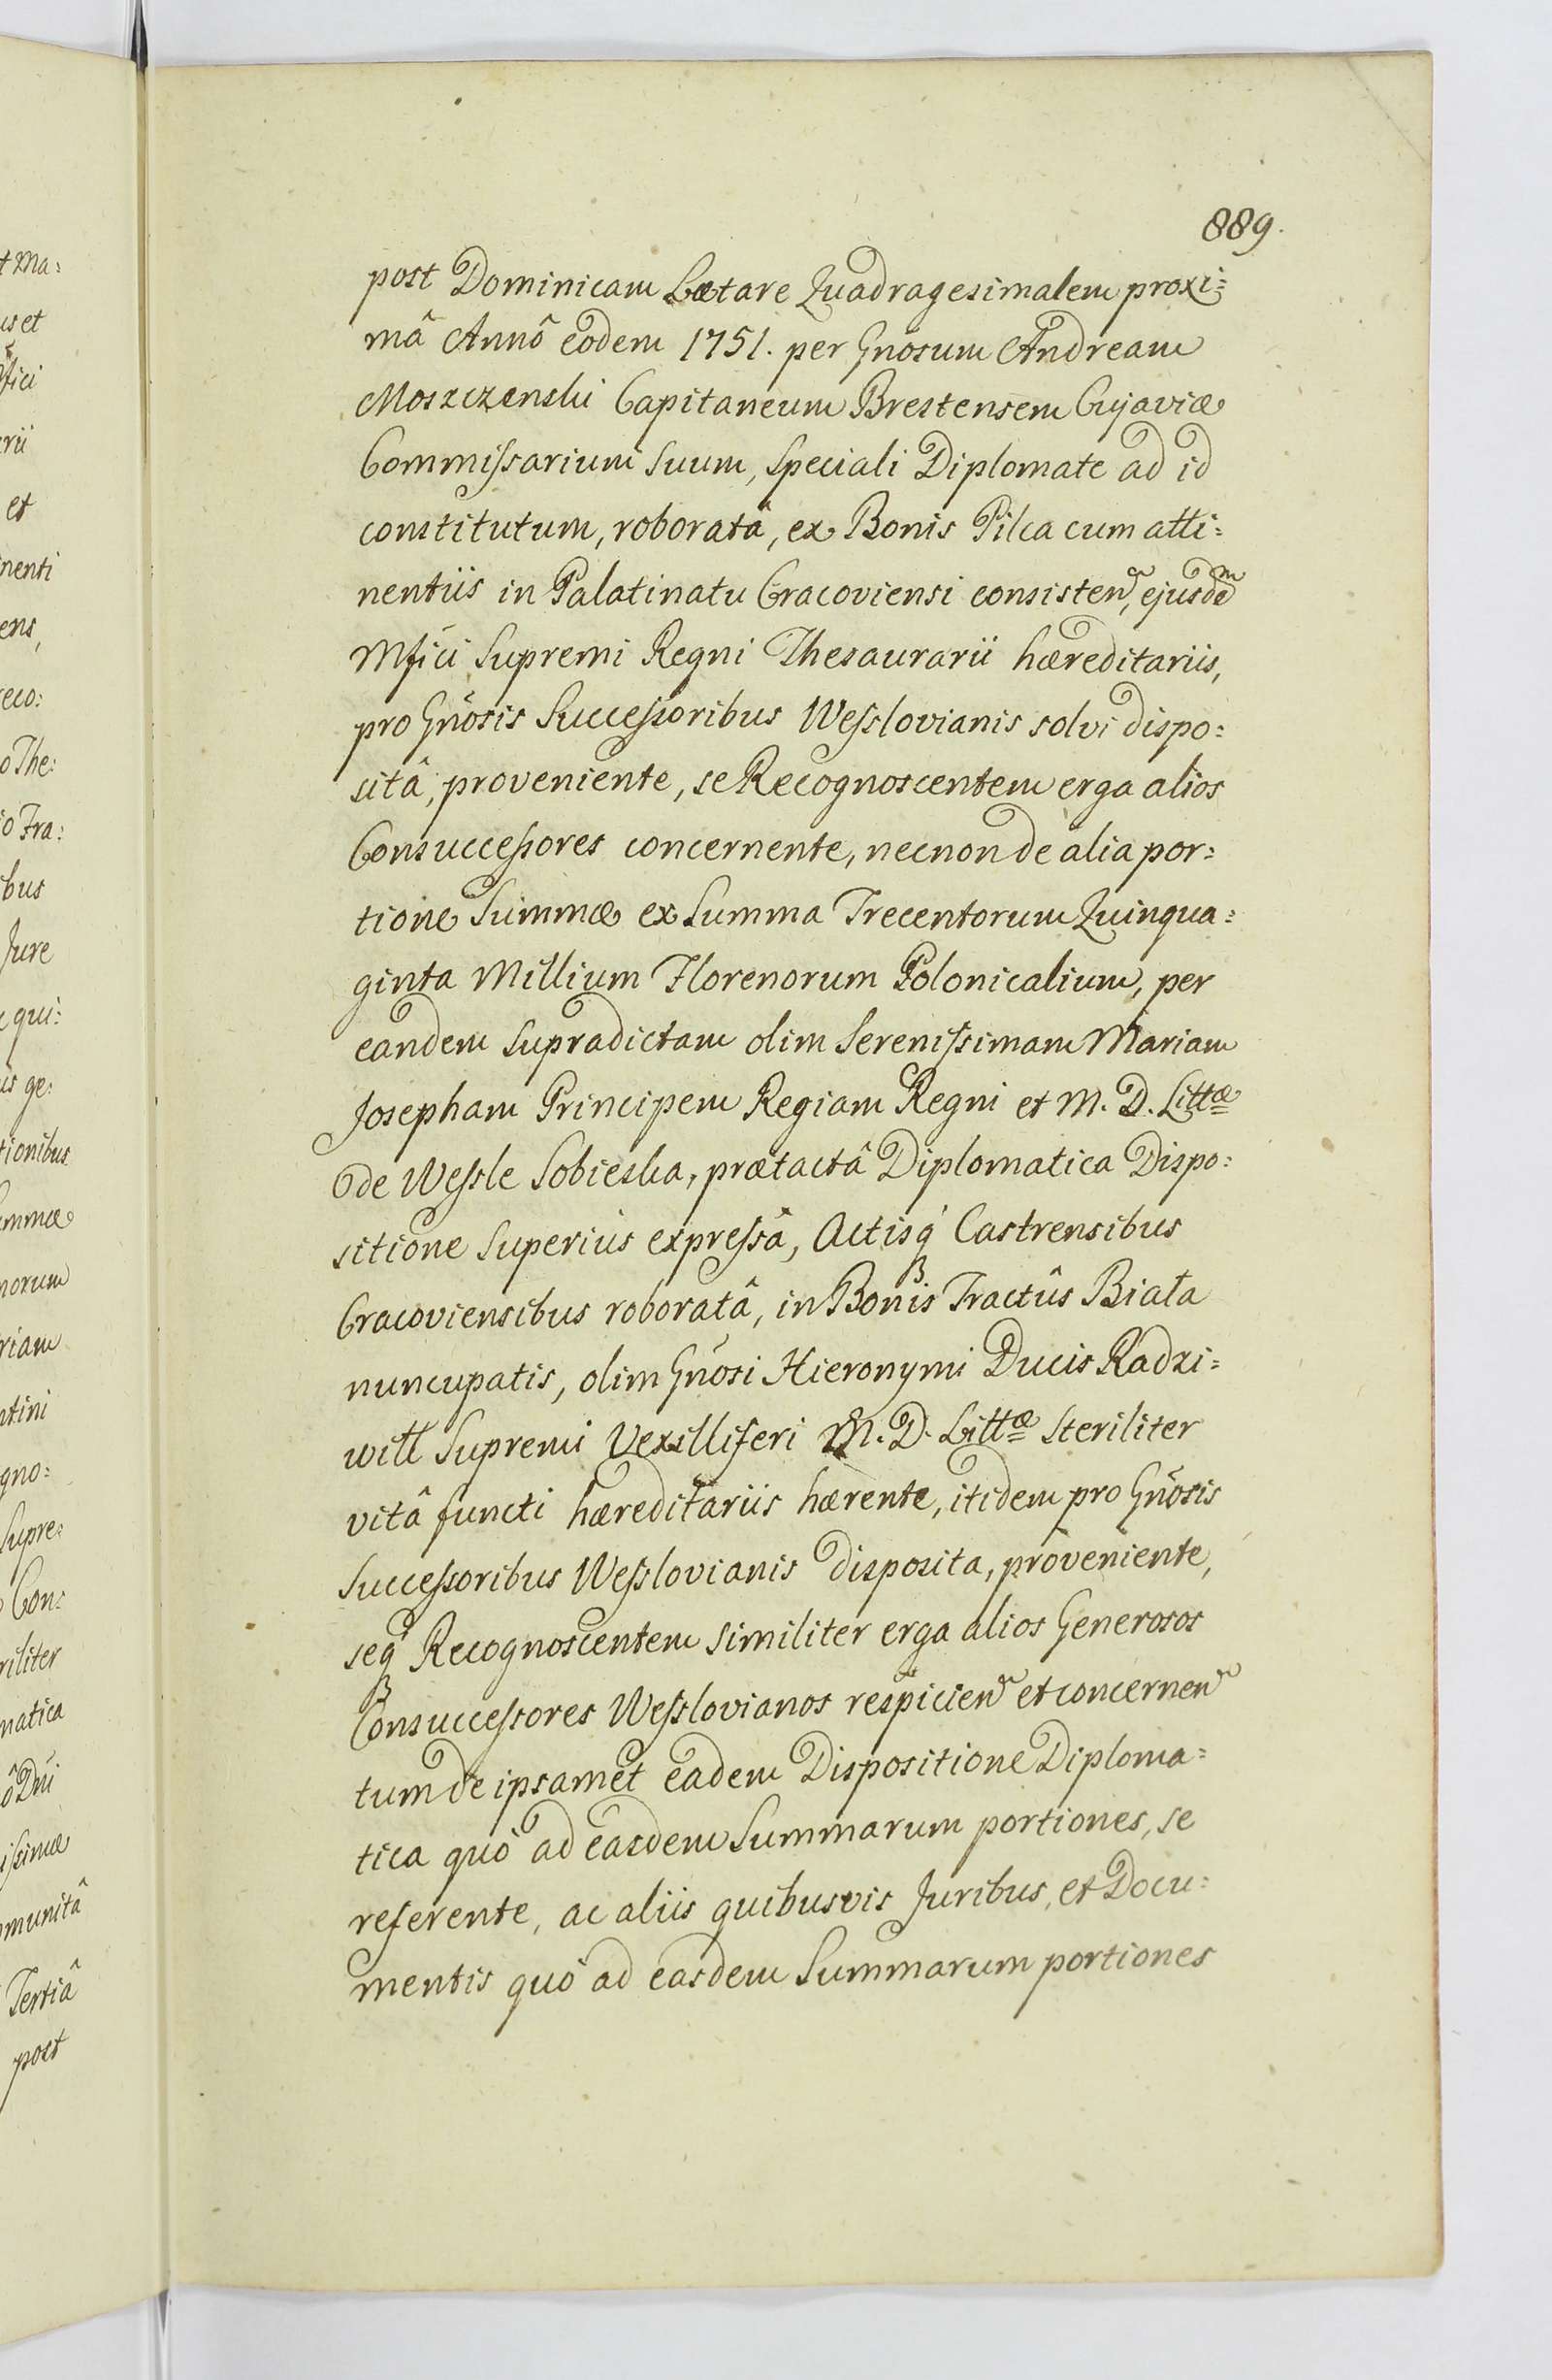 889.
post Dominicam Lætare Quadragesimalem proxi=
mâ Annô eodem 1751. per Gnōsum Andream
Moszczenski Capitaneum Brestensem Cujaviæ
Commissarium suum, speciali Diplomate ad id
constitutum, roboratâ, ex Bonis Pilca cum atti=
nentiis in Palatinatu Cracoviensi consisten, ejusdem
Mfici Supremi Regni Thesaurarii hæreditariis,
pro Gnōsis Successoribus Wesslovianis solvi dispo=
sitâ, proveniente, se Recognoscentem erga alios
Consuccessores concernente, necnon de alia por=
tione Summæ ex Summa Trecentorum Quinqua=
ginta Millium Florenorum Polonicalium, per
eandem supradictam olim Serenissimam Mariam
Josepham Principem Regiam Regni et M. D. Littæ
de Wessle Sobieska, prætactâ Diplomatica Dispo=
sitione superiùs expressâ, Actisq́ Castrensibus
Cracoviensibus roboratâ, in Bonis Tractûs Biała
nuncupatis, olim Gnōsi Hieronymi Ducis Radzi=
wiłł Supremi Vexilliferi M. D. Littæ steriliter
vitâ functi hæreditariis hærente, itidem pro Gnōsis
Successoribus Wesslovianis disposita, proveniente,
seq́ Recognoscentem similiter erga alios Generosos
Consuccessores Wesslovianos respicien et concernen
tum de ipsamet eadem Dispositione Diploma=
tica quò ad easdem Summarum portiones, se
referente, ac aliis quibusvis Juribus, et Docu=
mentis quò ad easdem Summarum portiones